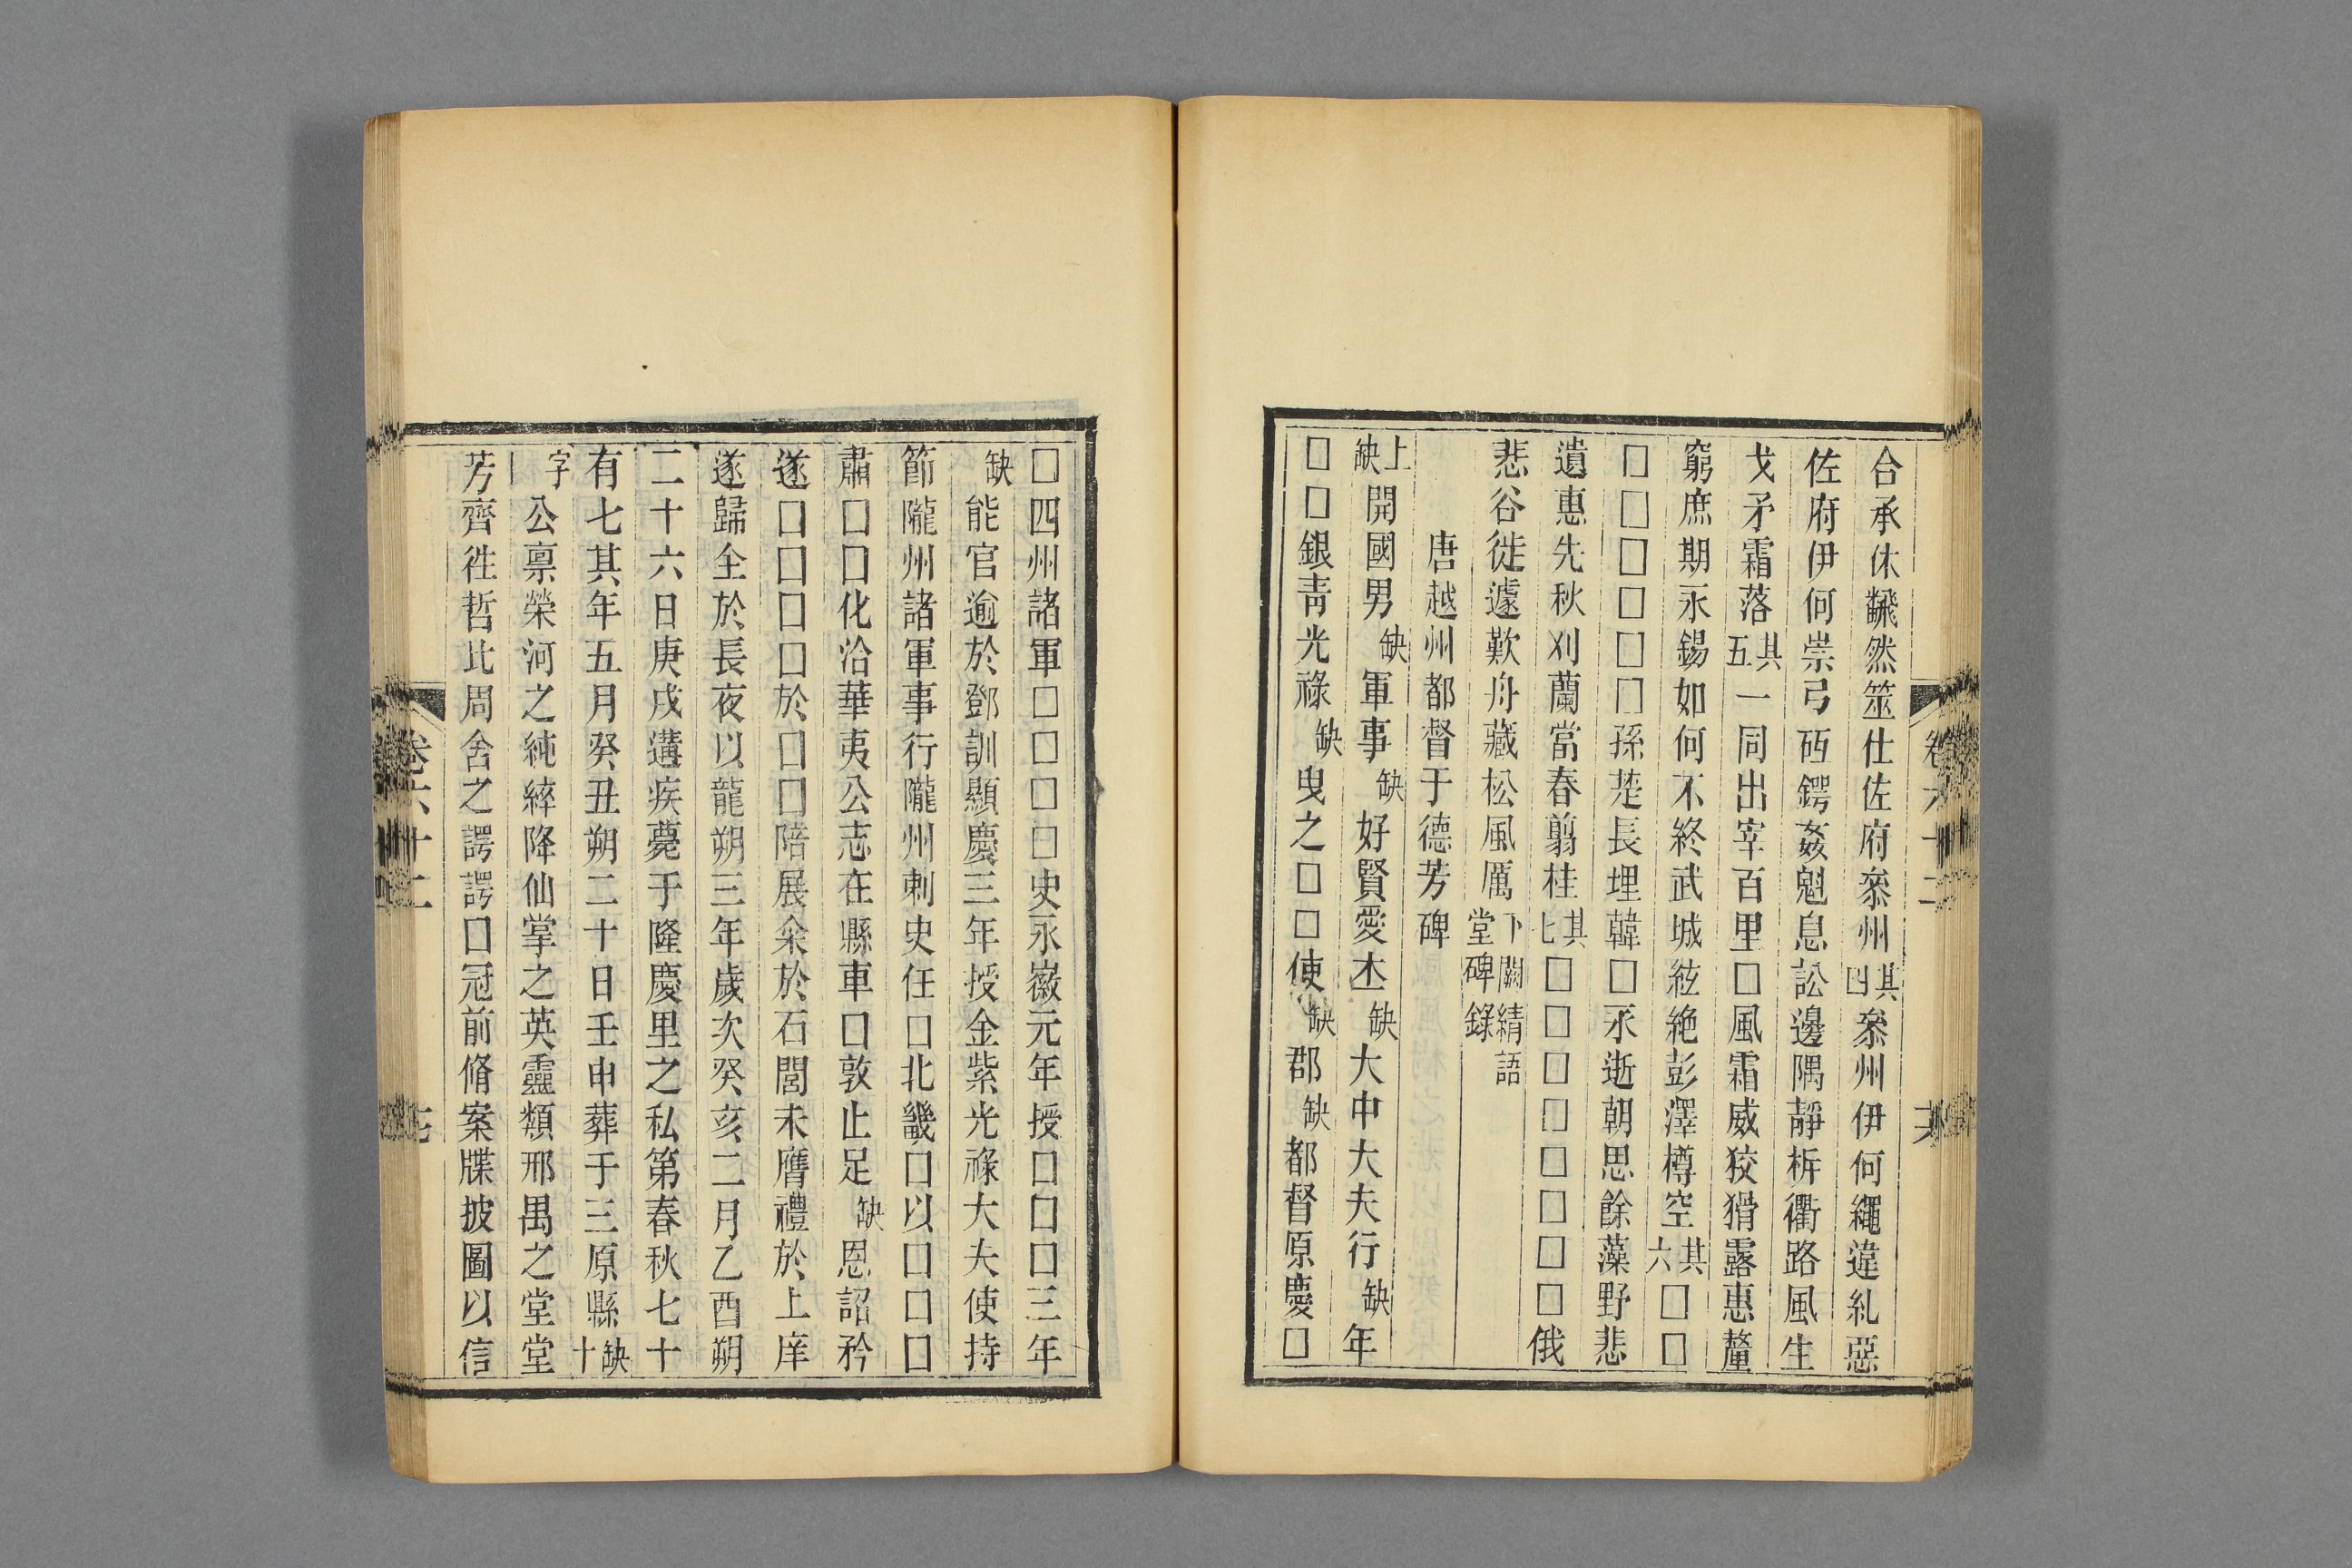 合承休飜然筮仕佐府叅州其四叅州伊何繩違糺惡
佐府伊何崇弓砳鍔姦魁息訟邊隅靜柝衢路風生
戈矛霜落其五一同出宰百里□風霜威狡猾露惠釐
窮庶期永錫如何不終武城絃絶彭澤樽空其六□□
□□□□□□孫楚長埋韓□永逝朝思餘藻野悲
遺惠先秋刈蘭當春翦桂其七□□□□□□□□俄
悲谷徙遽歎舟藏松風厲下闕綪語堂碑錄
唐越州都督于德芳碑
上缺開國男缺軍事缺好賢愛士缺大中大夫行缺年
□□銀靑光祿缺曳之□□使缺郡缺都督原慶□
卷六十二
□四州諸軍□□□□史永徽元年授□□□三年
缺能官逾於鄧訓顯慶三年授金紫光祿大夫使持
節隴州諸軍事行隴州刺史任□北畿□以□□□
肅□□化洽華夷公志在縣車□敦止足缺恩詔矜
遂□□□□於□□陪展寀於石閭未膺禮於上庠
遂歸全於長夜以龍朔三年歲次癸亥二月乙酉朔
二十六日庚戌遘疾薨于隆慶里之私第春秋七十
有七其年五月癸丑朔二十日壬申葬于三原縣缺十
字公禀榮河之純綷降仙掌之英靈類邢禺之堂堂
芳齊徃哲比周舍之諤諤□冠前脩案牒披圖以信
卷六十二